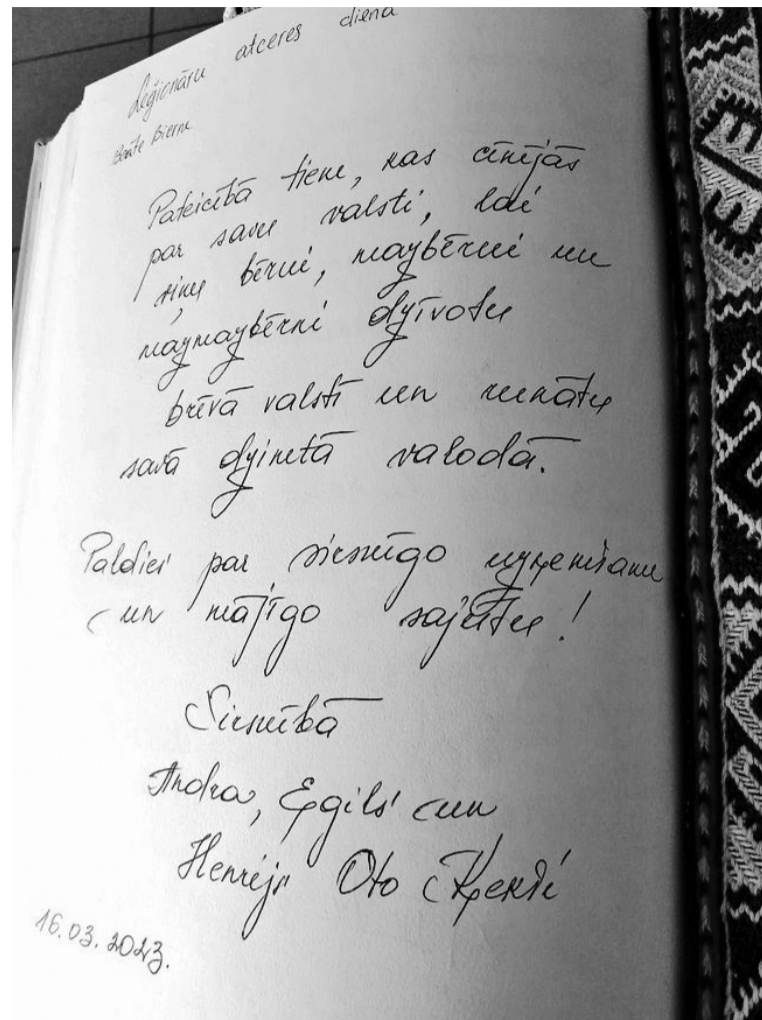 Leģionāru atceres diena
Pateicībā tiem, kas cīnījās
par savu valsti, lai
viņu bērni, mazbērni un
mazmazbērni dzīvotu
brīvā valstī un runātu
savā dzimtā valodā.
Paldies par sirsnīgo uzņemšanu
un mājīgo sajūtu!
Sirsnībā
Andra, Egils un
Henrijs Oto
16.03.2023.